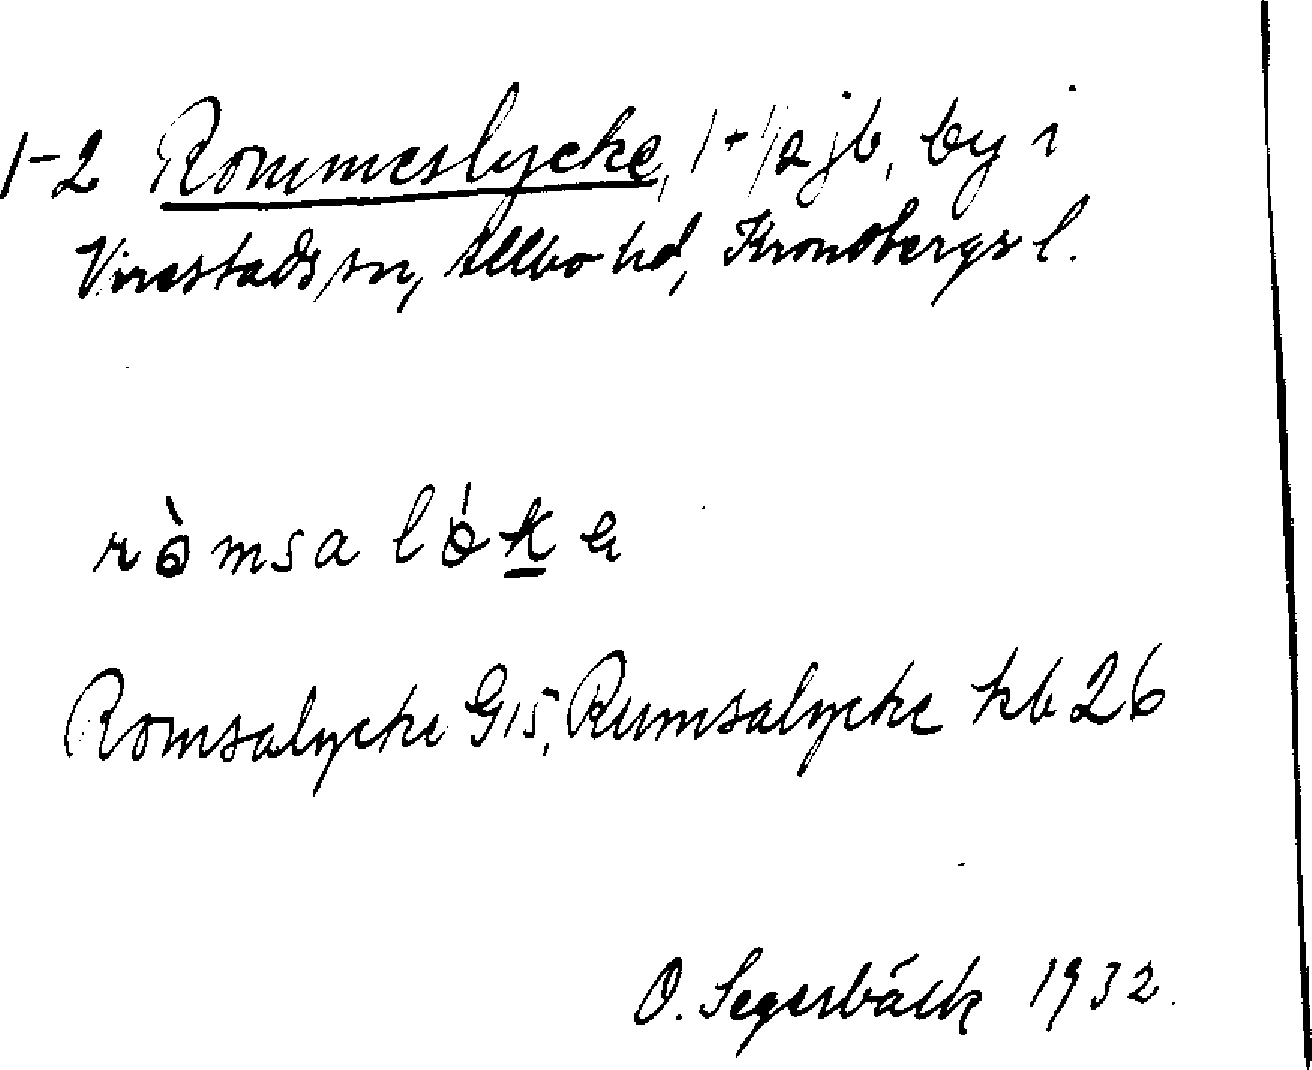 1-2 Rommeslycke, 1+1/2 jb, by i
Virestads sn, Allbo hd, Kronobergs l.
ròmsa lókɐ
Romsalycke G15, Rumsalycke hb 26
O. Segerbäck 1932.